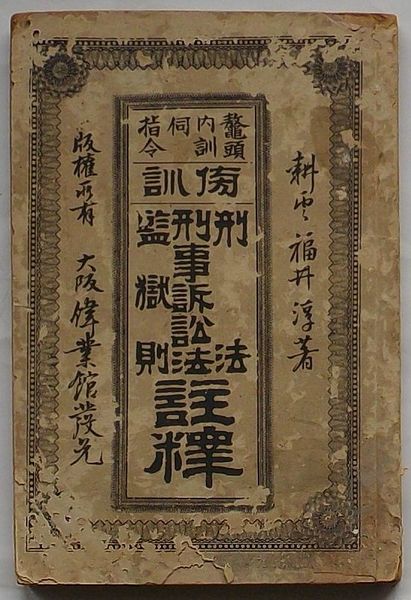 耕雲 福井淳著
鼇頭
内訓
伺
指令
傍訓
刑法
刑事訴訟法
監獄則
註釋
版權所有 大阪 偉業館發兌